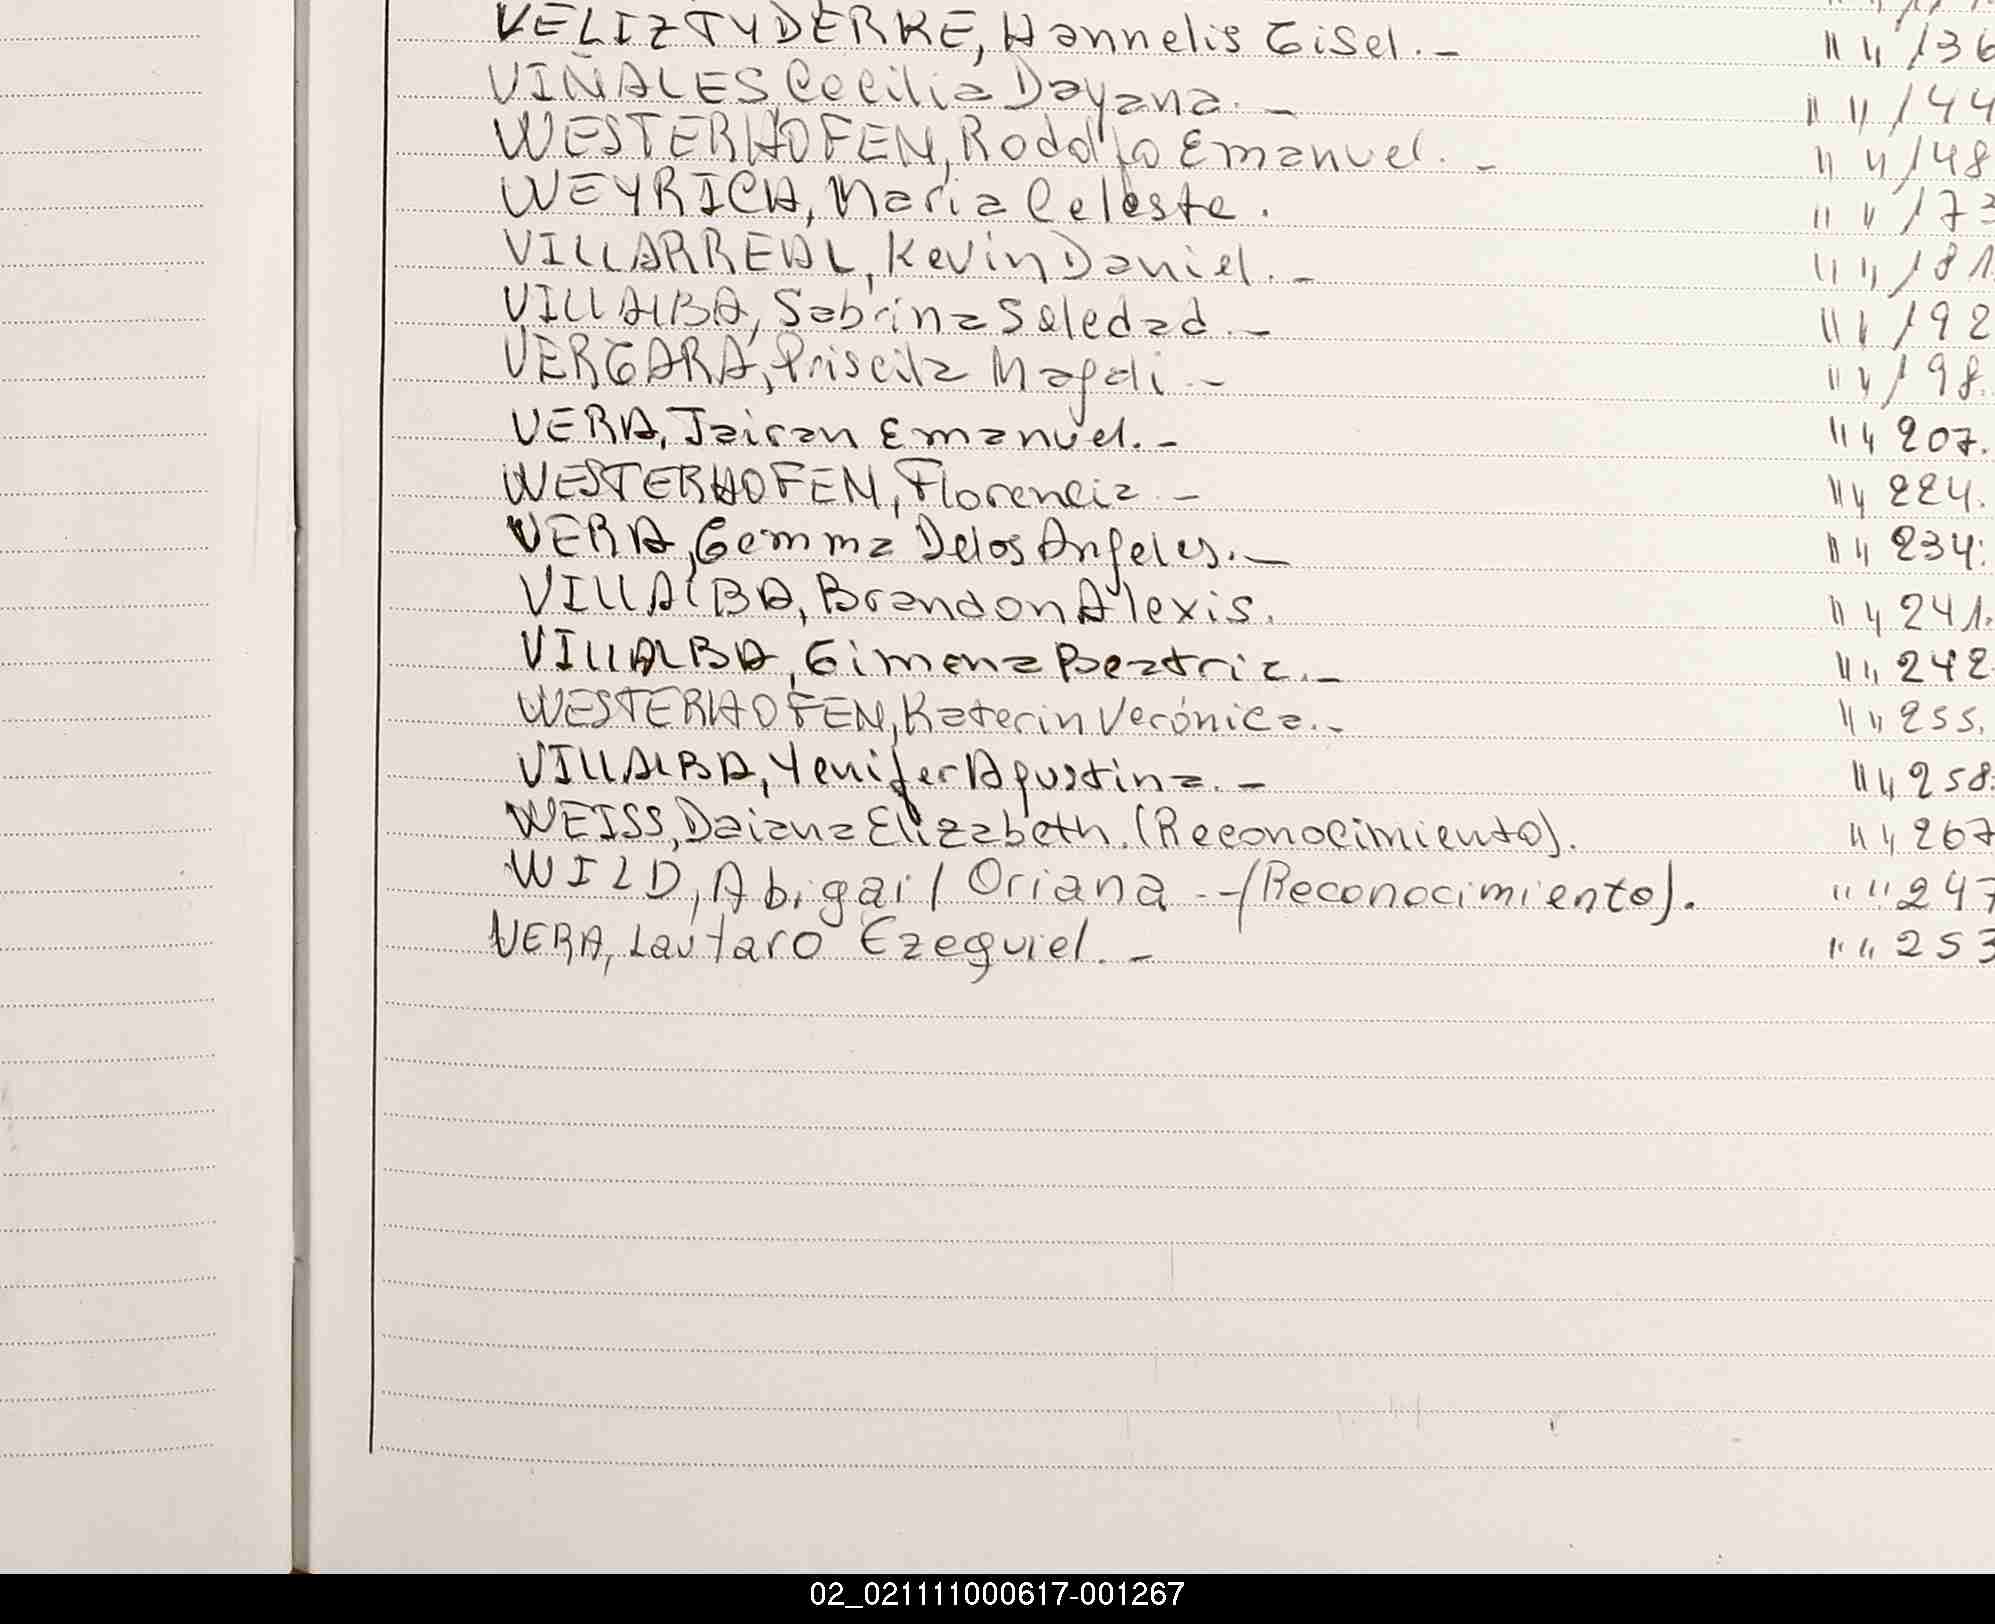 VELIZ TYDERKE, Hannelis Gisel.- " " 136
VIÑALES, Cecilia Dayana.- " " 144
WESTERHOFEN, Rodolfo Emanuel.- " " 148
WEYRICH, Maria Celeste. " " 173
VILLARREAL, Kevin Daniel.- " " 181.
VILLALBA, Sabrina Soledad.- " " 192
VERGARA, Priscila Magali.- " " 198.
VERA, Jairan Emanuel.- " " 207.
WESTERHOFEN, Florencia.- " " 224.
VERA, Gemma Delos Angeles.- " " 234.
VILLALBA, Brandon Alexis. " " 241.
VILLALBA, Gimena Beatriz.- " " 242
WESTERHOFEN, Katerin Verónica.- " " 255.
VILLALBA, Yenifer Agustina.- " " 258.
WEISS, Daiana Elizabeth. (Reconocimiento). " " 267
WILD, Abigail Oriana.-(Reconocimiento). " " 247
VERA, Lautaro Ezequiel.- " " 253
02_021111000617-001267